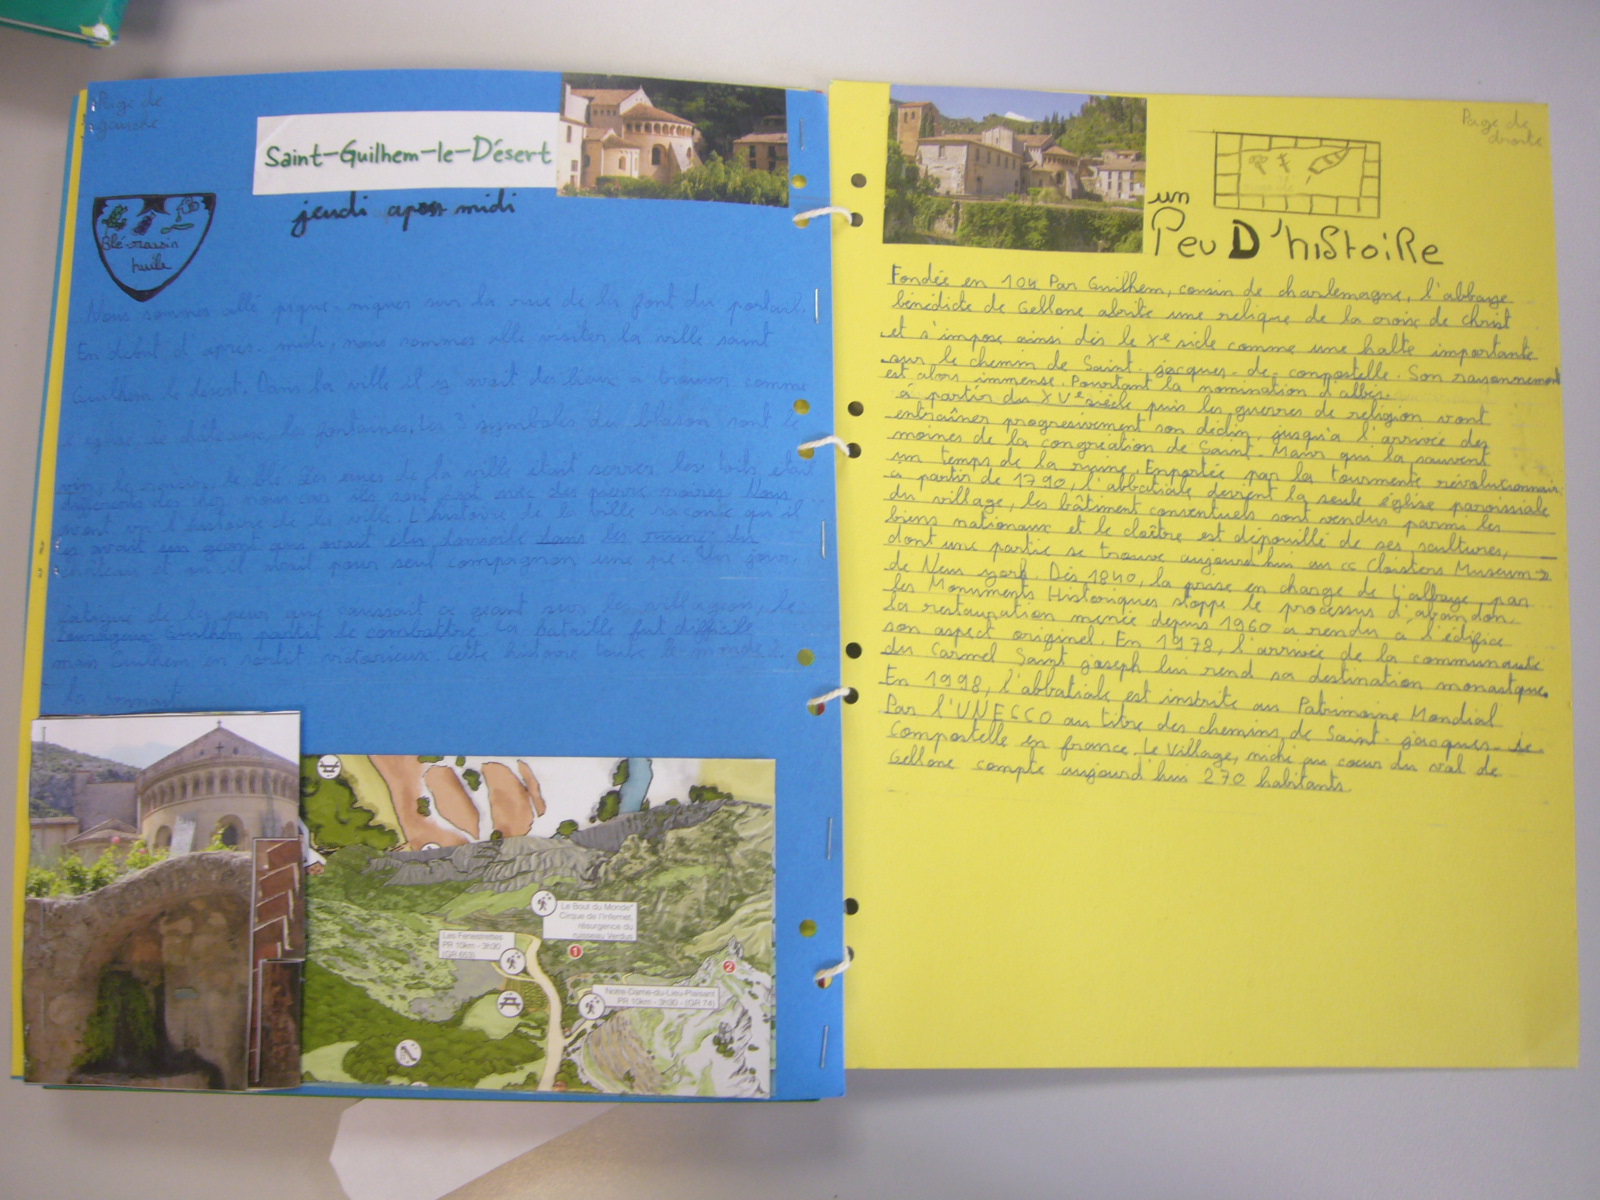 Page de
gauche
Saint-Guilhem-le-Désert
jeudi apres midi
Blé-raisin
huile
Nous sommes allé pique-niquer sur la rive de la font du portail.
En début d'après-midi, nous sommes allé visiter la ville saint
Guilhem le désert. Dans la ville il y avait des lieux à trouver comme
l'église, le château, la fontaines, les 3 symboles du blason sont le
raisin, le blé. Les rues de la ville était serrer les toits était
des pierre noires. Nous
avont vu l'histoire de la ville. L'histoire de la ville raconte qu'il
y avait un géant qui avait élu domicile dans les ruine du
château et il avait pour seul compagnon une pie. Un jour,
fatigué de la peur que causait ce géant sur les villageois, le
courageux Guilhem partit le combattre. La bataille fut difficile
mais Guilhem en sortit victorieux. Cette histoire toute le monde
la connait.
Le Bout du Monde"
Cirque de l'Infernet,
résurgence du
ruisseau Verdus
Les Fenestrettes
PR 10km - 3h30
(GR 653)
1
2
Notre-Dame-du-Lieu-Plaisant
PR 10km - 3h30 - (GR 74)
Page de
droite
un
Peu D'histoiRe
Fondée en 104 Par Guilhem, cousin de charlemagne, l'abbaye
bénédicte de Gellone abrite une relique de la croix de christ
et s'impose ainsi dès le Xe siècle comme une halte importante
sur le chemin de Saint-jacques-de-compostelle. Son raisonnement
est alors immense. Pourtant la nomination d'albés
à partir du XVe siècle puis les guerres de religion vont
entraîner progresivement son déclin, jusqu'à l'arrivée des
moines de la congréation de Saint-Maur qui la sauvent
un temps de la ruine. Emportée par la tourmente révolutionnair
a partir de 1790, l'abbatiale devient la seule église paroissiale
du village, les bâtiment conventuels sont vendus parmi les
biens nationaux et le cloître est dépouillé de ses scultures,
dont une partie se trouve aujourd'hui au << Cloisters Museum >>
de New york. Dès 1840, la prise en charge de l'abbaye par
les Monuments Historiques stoppe le processus d'abandon.
la restauration menée depuis 1960 a rendu à l'édifice
son aspect originel. En 1978, l'arrivée de la communauté
du Carmel Saint joseph lui rend sa destination monastque.
En 1998, l'abbatiale est instrite au Patrimoine Mondial
Par l'UNECCO au titre des chemins de Saint-jacques-de-
Compostelle en france. Le Village, niché au cœur du val de
Gellone compte aujourd'hui 270 habitants.